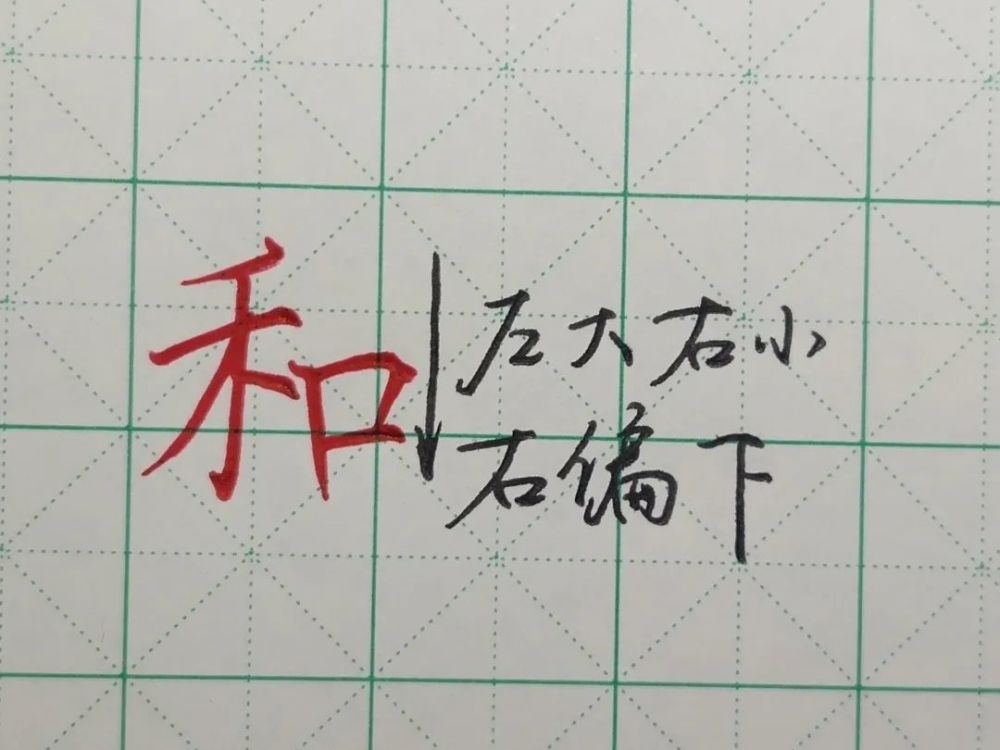 和
左大右小
右偏下